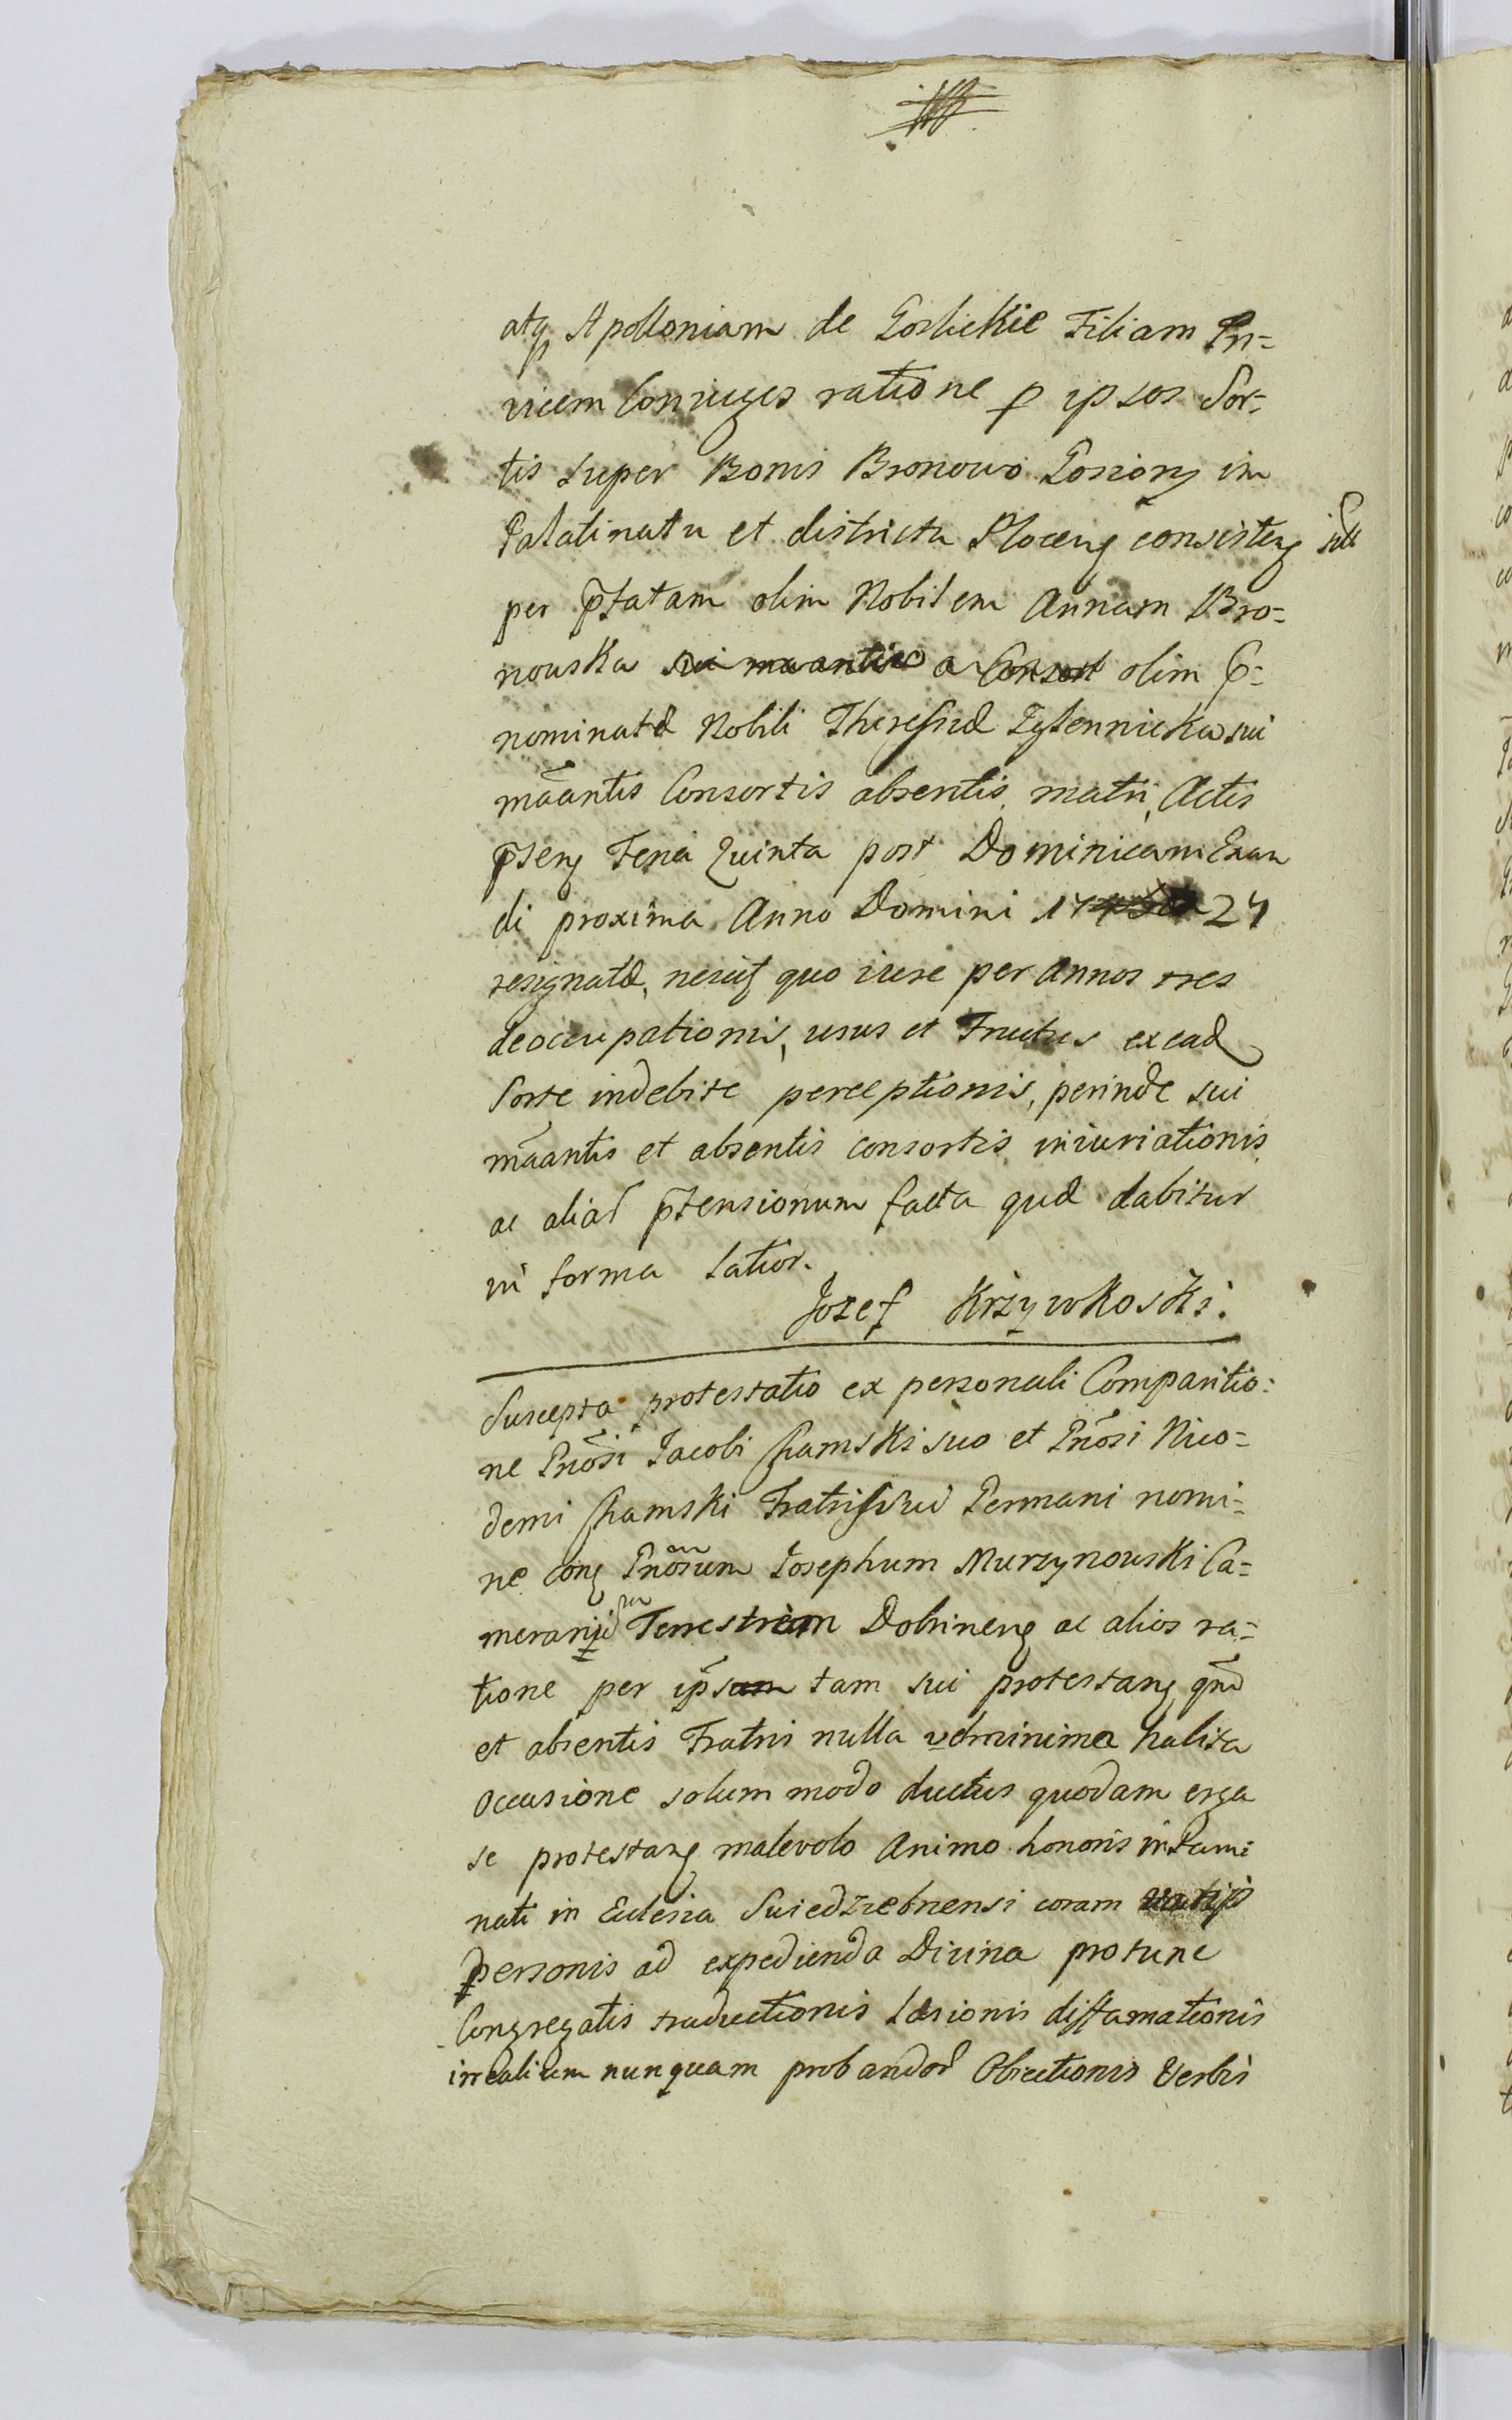 atq Apolloniam de Goslickie Filiam In=
vicem Coniuges ratione p ipsos Sor=
tis super Bonis Bronowo Zosiony in
Palatinatu et districtu Ploceng consisteng
per p̃tatam olim Nobilem Annam Bro=
nouska sui maantis a Consort olim P=
nominatæ Nobili Theressiæ Zglennicka sui
mãantis Consortis absentis matri, Actis
p̃seng Feria Quinta post Dominicam Exau
di proxima Anno Domini 17 24
resignatæ, nesciț quo iure per annos tres
deoccupationis, usus et Fructus ex ead
Sorte indebite perceptionis, perinde sui
mãantis et absentis consortis iniuriationis
ac aliar p̃tensionum facta quæ dabitur
in forma latior.
Jozef Krzywkoski.
Suscepta protestatio ex personali Comparitio=
ne Gnõsi Jacobi Chamski suo et Gnõsi Nico=
demi Chamski Fratris sui Germani nomi=
ne cong Gnõsum Josephum Murzynouski Ca=
merarij Terrestrem Dobrineng ac alios ra=
tione per ip̃sum tam sui protestang qm̃
et absentis Fratris nulla vel minima habita
occasione solum modo ductus quodam erga
se protestang malevolo Animo honoris intami
nati in Ecclesia Suiedziebnensi coram
personis ad expedienda Divina protunc
Congregatis traductionis læsionis diffamationis
irrealium nunquam probandor Obiectionis Verbis